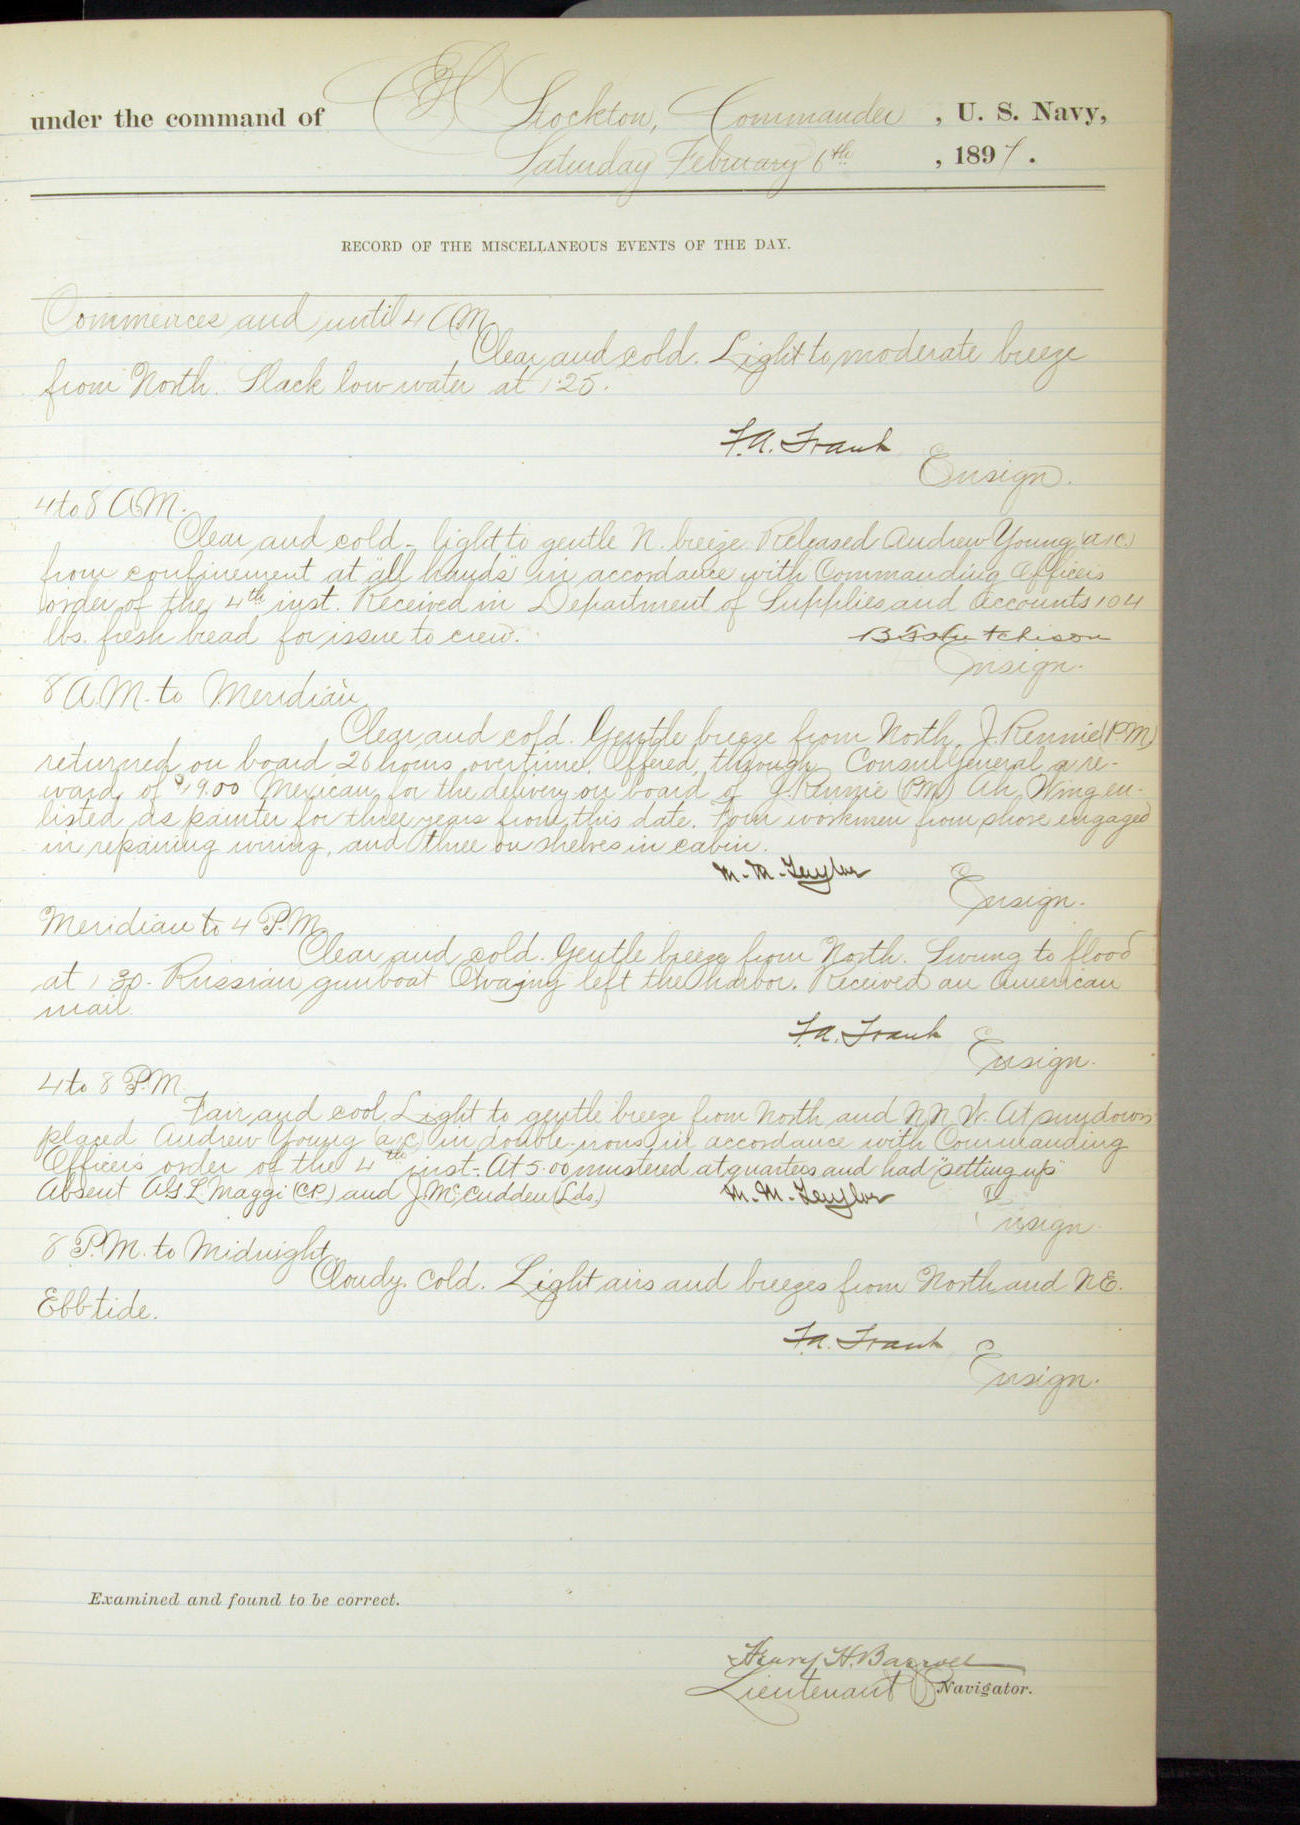 under the command of C H Stockton, Commander, U. S. Navy,
Saturday February 6th, 1897.
RECORD OF THE MISCELLANEOUS EVENTS OF THE DAY.
Commences and until 4 A.M.
Clear and cold. Light to moderate breeze
from North. Slack low water at 1.25.
F.A. Frank
Ensign.
4 to 8 A.M.
Clear and cold - light to gentle N. breeze. Released Andrew Young
from confinement at "all hands" in accordance with Commanding Officers
order of the 4th inst. Received in Department of Supplies and Accounts 104
lbs. fresh bread for issue to crew.
Hutchison
Ensign.
8 A.M. to Meridian
Clear and cold. Gentle breeze from North. J. Rennie (P.M.)
returned on board 26 hours overtime. Offered, through Consul General a re-
ward of $19.00 Mexican for the delivery on board of J. Rennie (P.M.) Ah Wing en-
listed as painter for three years from this date. Four workmen from shore engaged
in repairing wiring, and three on shelves in cabin.
M. M. Taylor
Ensign.
Meridian to 4 P.M.
Clear and cold. Gentle breeze from North. Swung to flood
at 1.30. Russian gunboat Otvajny left the harbor. Received an American
mail.
F.A. Frank
Ensign.
4 to 8 P.M.
Fair and cool Light to gentle breeze from North and N.N.W. At sundown
placed Andrew Young in double irons in accordance with Commanding
Officers order of the 4th inst. At 5.00 mustered at quarters and had "setting up"
Absent A.G.L. Maggi (C.P.) and J. McCudden (Lds.)
M. M. Taylor
Ensign.
8 P.M. to Midnight
Cloudy. Cold. Light airs and breezes from North and NE.
Ebb tide.
F.A. Frank
Ensign.
Examined and found to be correct.
Henry H. Barroll
Lieutenant Navigator.